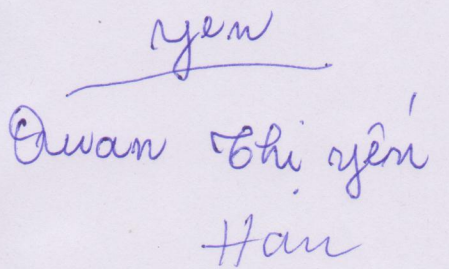 yen
Quan Thị yến
Hạn